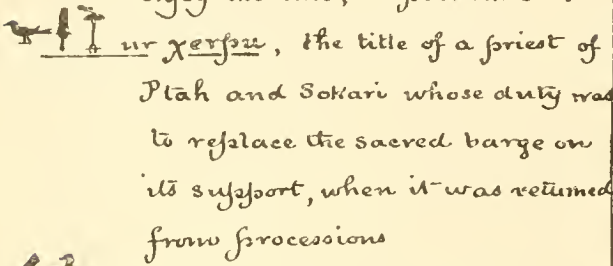 ur χerpu, the title of a priest of
Ptah and Sokari whose duty was
to replace the sacred barge on
its support, when it was returned
from processions